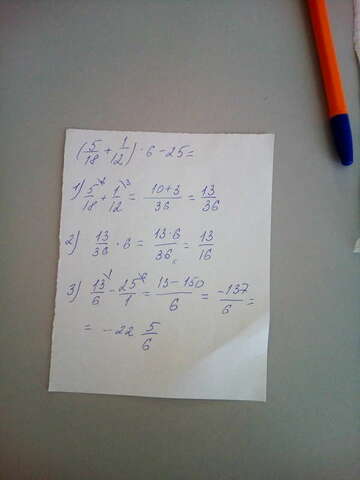 (5/18 + 1/12) · 6 - 25 =
1) 5/18 + 1/12 = 10+3/36 = 13/36
2) 13/36 · 6 = 13·6/36 = 13/16
3) 13/6 - 25/1 = 13-150/6 = -137/6 =
= -22 5/6